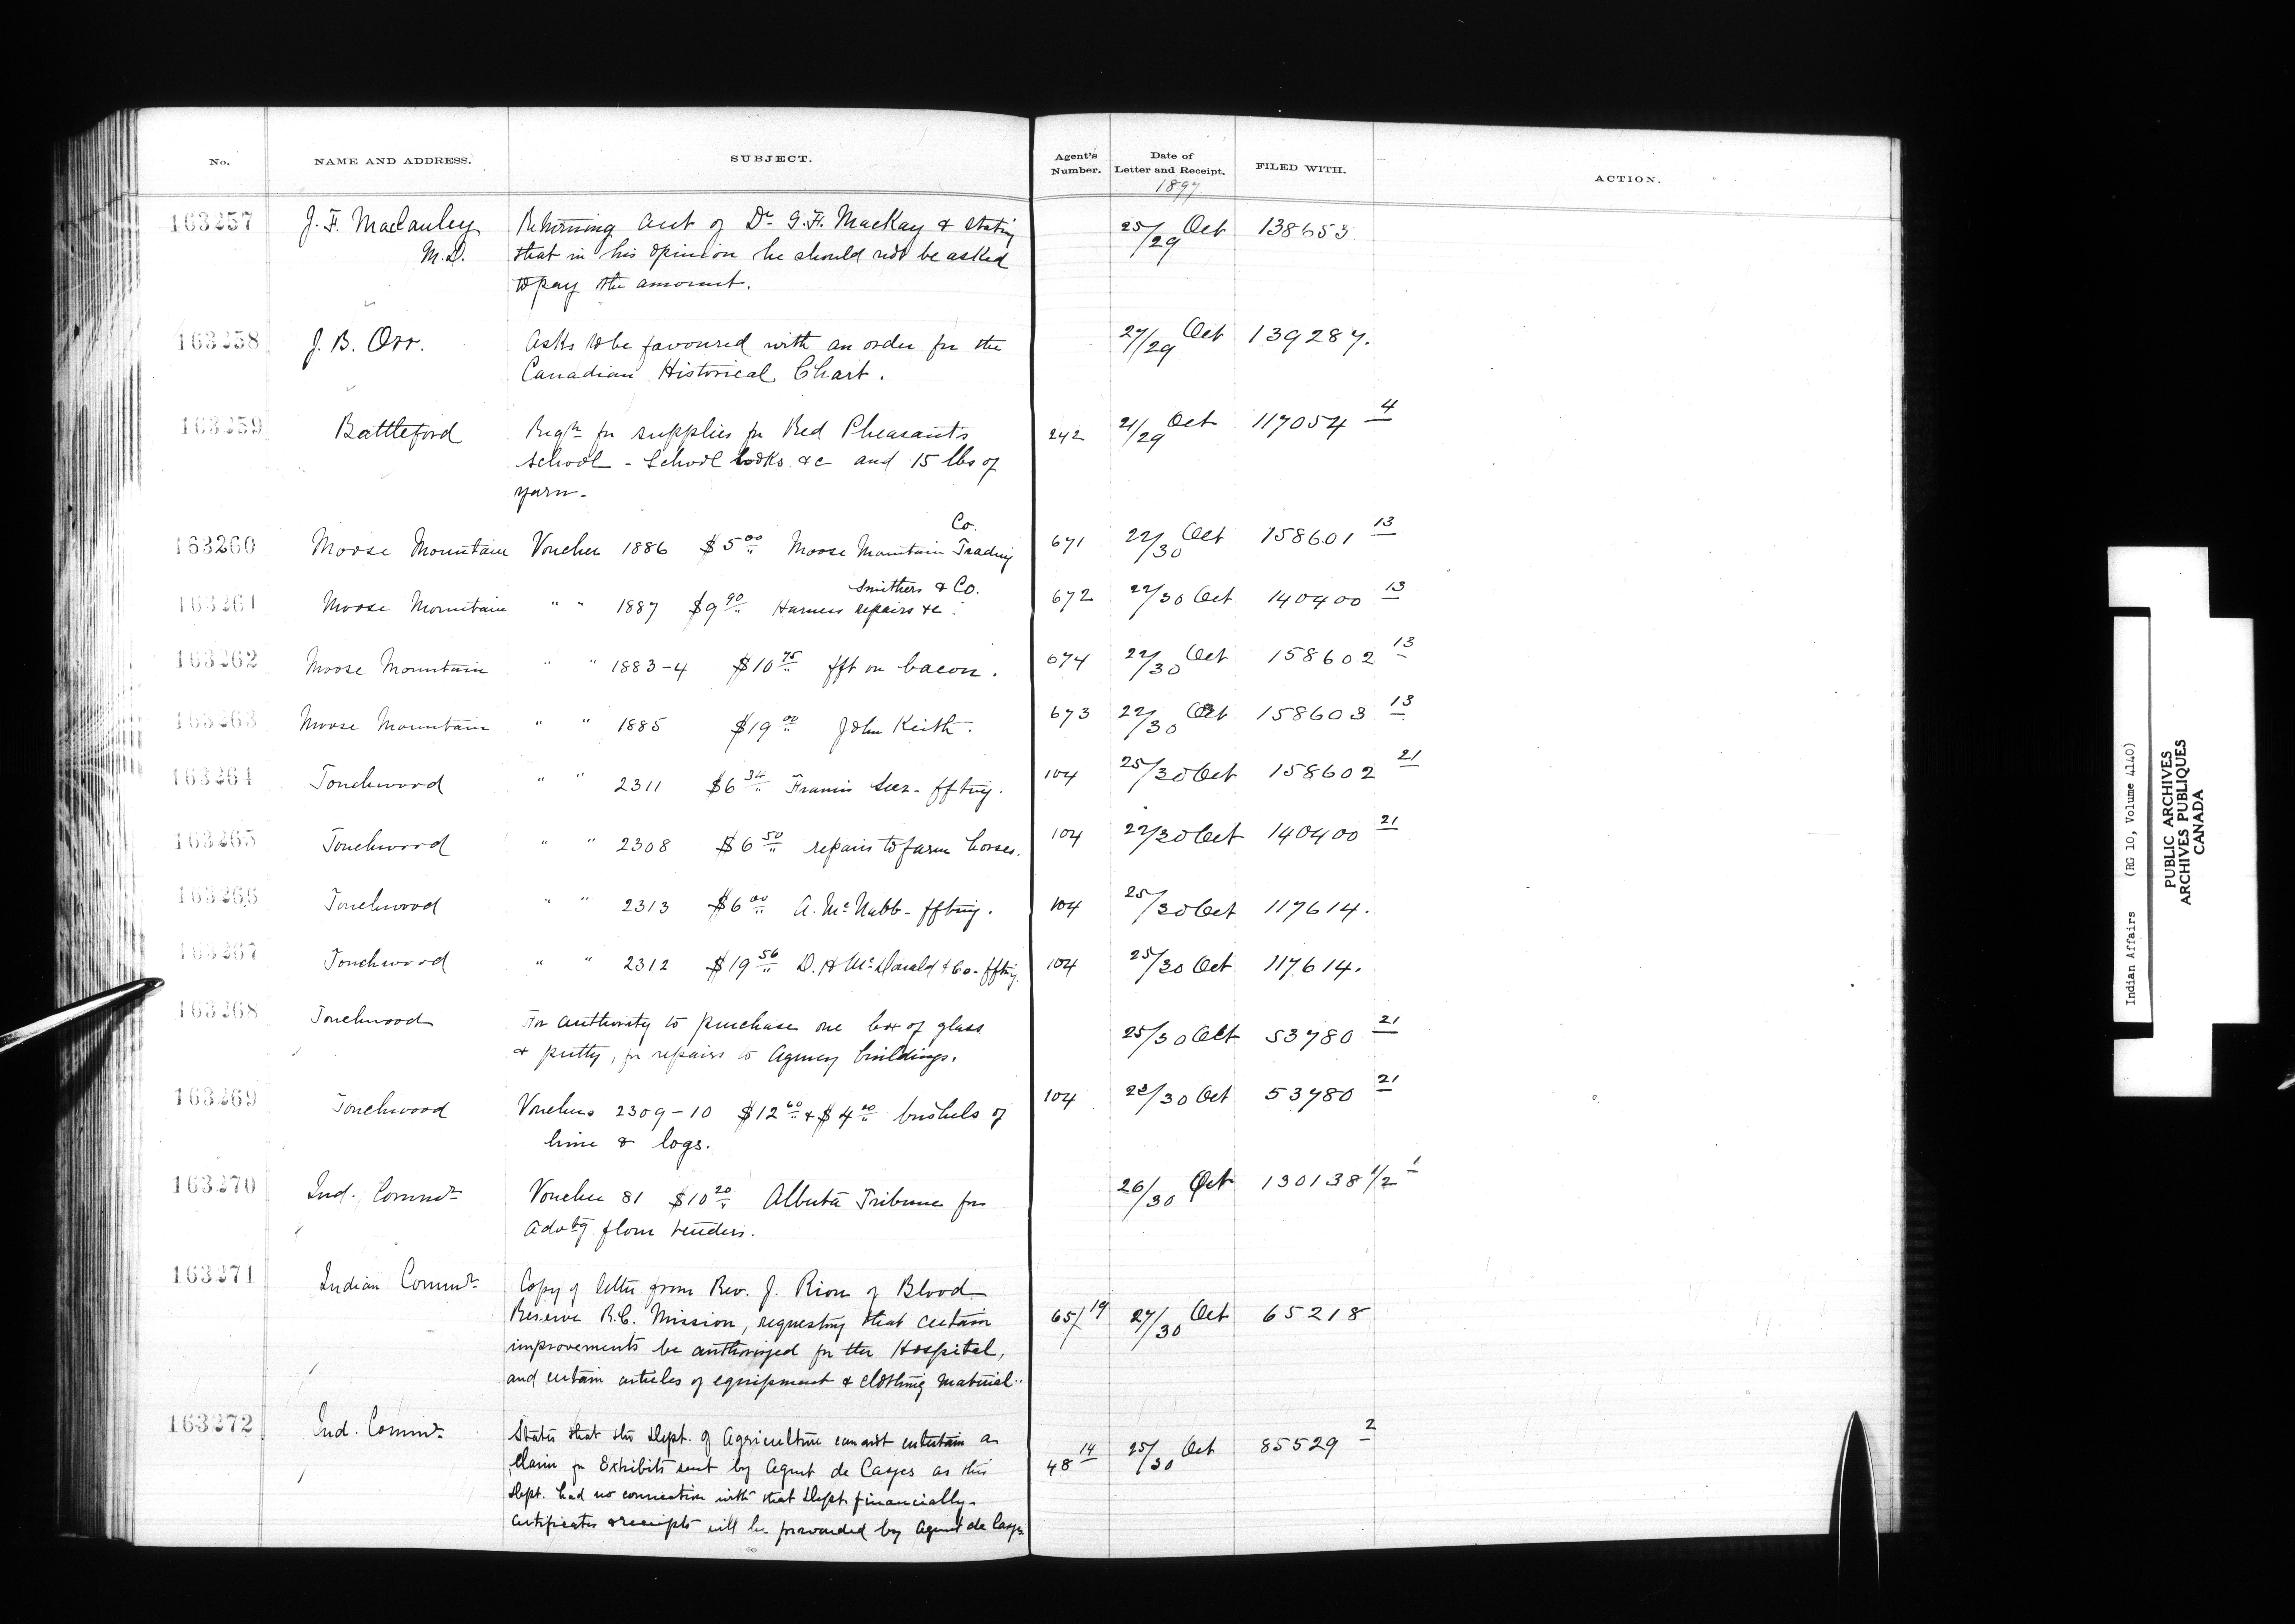 No. NAME AND ADDRESS. SUBJECT. Agent's Number. Date of Letter and Receipt. FILED WITH. ACTION.
1897
163257 J. F. Macauley M.D. Returning acct of Dr G. F. MacKay & stating 25/29 Oct 138653
that in his opinion he should not be asked
to pay the amount.
163258 J. B. Orr. Asks to be favoured with an order for the 27/29 Oct 139287.
Canadian Historical Chart.
163259 Battleford Reqn for supplies for Red Pheasants 242 21/29 Oct 117054 4
school - School books &c and 15 lbs of
yarn -
163260 Moose Mountain Voucher 1886 $5 00 Moose Mountain Trading Co. 671 22/30 Oct 158601 13
163261 Moose Mountain " " 1887 $9 90 Harness repairs &c. Smithers & Co. 672 22/30 Oct 140400 13
163262 Moose Mountain " " 1883-4 $10 75 fft on bacon. 674 22/30 Oct 158602 13
163263 Moose Mountain " " 1885 $19 00 John Keith. 673 22/30 Oct 158603 13
163264 Touchwood " " 2311 $6 34 Francis - ffting. 104 25/30 Oct 158602 21
163265 Touchwood " " 2308 $6 50 repairs to farm horses. 104 22/30 Oct 140400 21
163266 Touchwood " " 2313 $6 00 A. McNabb - ffting. 104 25/30 Oct 117614.
163267 Touchwood " " 2312 $19 56 D. H McDonald & Co - ffting. 104 25/30 Oct 117614.
163268 Touchwood For authority to purchase one box of glass 25/30 Oct 53780 21
& putty, for repairs to Agency buildings.
163269 Touchwood Vouchers 2309-10 $12 60 & $4 00 bushels of 104 /30 Oct 53780 21
lime & logs.
163270 Ind. Commr Voucher 81 $10 20 Alberta Tribune for 26/30 Oct 130138 1/2 1
advtg flour tenders.
163271 Indian Commr Copy of letter from Rev. J. Riou of Blood
Reserve R.C. Mission, requesting that certain 65/19 27/30 Oct 65218
improvements be authorized for the Hospital,
and certain articles of equipment & clothing material.
163272 Ind. Commr States that the Dept. of Agriculture cannot entertain a 48 14 25/30 Oct 85529 2
claim for Exhibits sent by Agent de Cazes as this
Dept. had no connection with that Dept. financially.
Certificates & receipts will be forwarded by Agent de Cazes
Indian Affairs (RG 10, Volume 4140)
PUBLIC ARCHIVES
ARCHIVES PUBLIQUES
CANADA